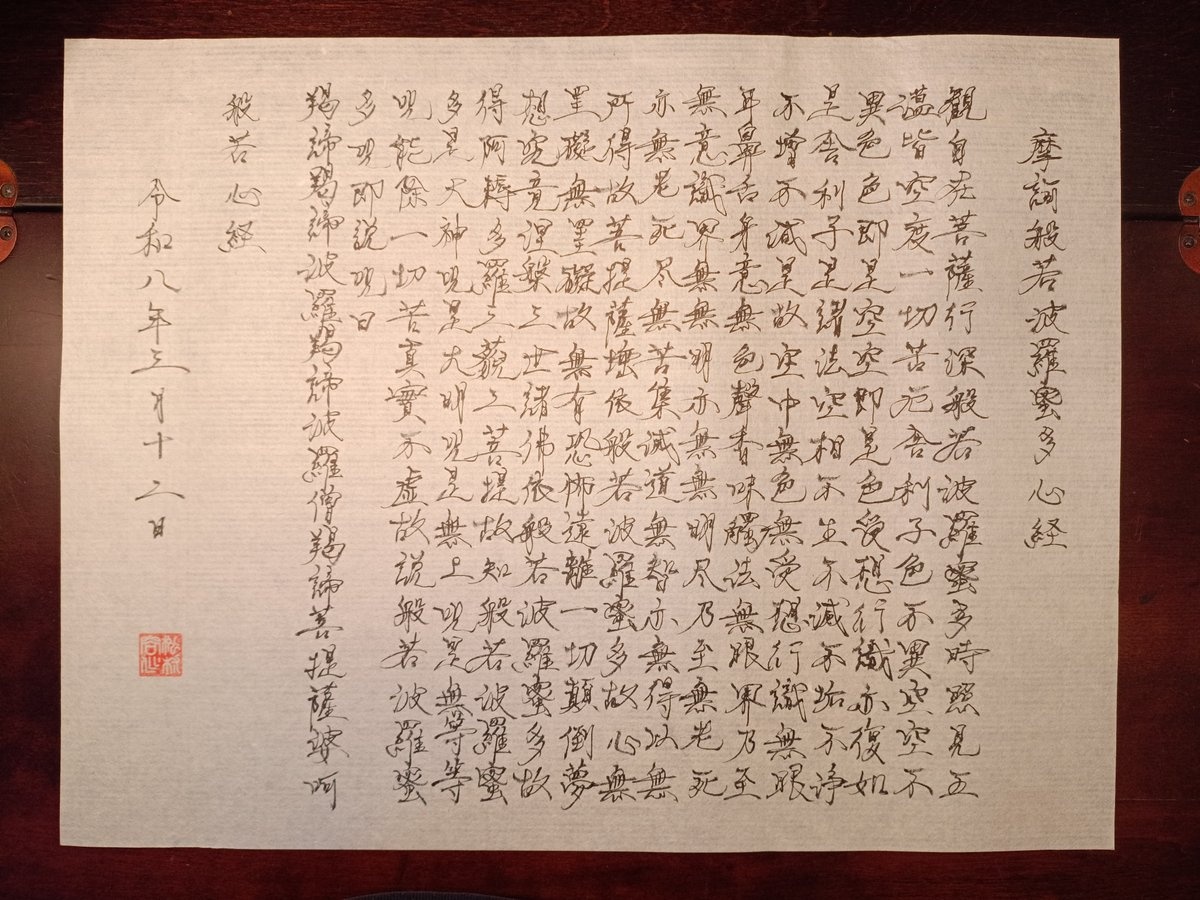 摩訶般若波羅蜜多心経
觀自在菩薩行深般若波羅蜜多時照見五
蘊皆空度一切苦厄舎利子色不異空空不
異色色即是空空即是色受想行識亦復如
是舎利子是諸法空相不生不滅不垢不浄
不増不減是故空中無色無受想行識無眼
耳鼻舌身意無色聲香味觸法無眼界乃至
無意識界無無明亦無無明尽乃至無老死
亦無老死尽無苦集滅道無智亦無得以無
所得故菩提薩埵依般若波羅蜜多故心無
罣礙無罣礙故無有恐怖遠離一切顛倒夢
想究竟涅槃三世諸佛依般若波羅蜜多故
得阿耨多羅三藐三菩提故知般若波羅蜜
多是大神呪是大明呪是無上呪是無等等
呪能除一切苦真實不虚故説般若波羅蜜
多呪即説呪曰
羯諦羯諦波羅羯諦波羅僧羯諦菩提薩婆呵
般若心経
令和八年三月十二日